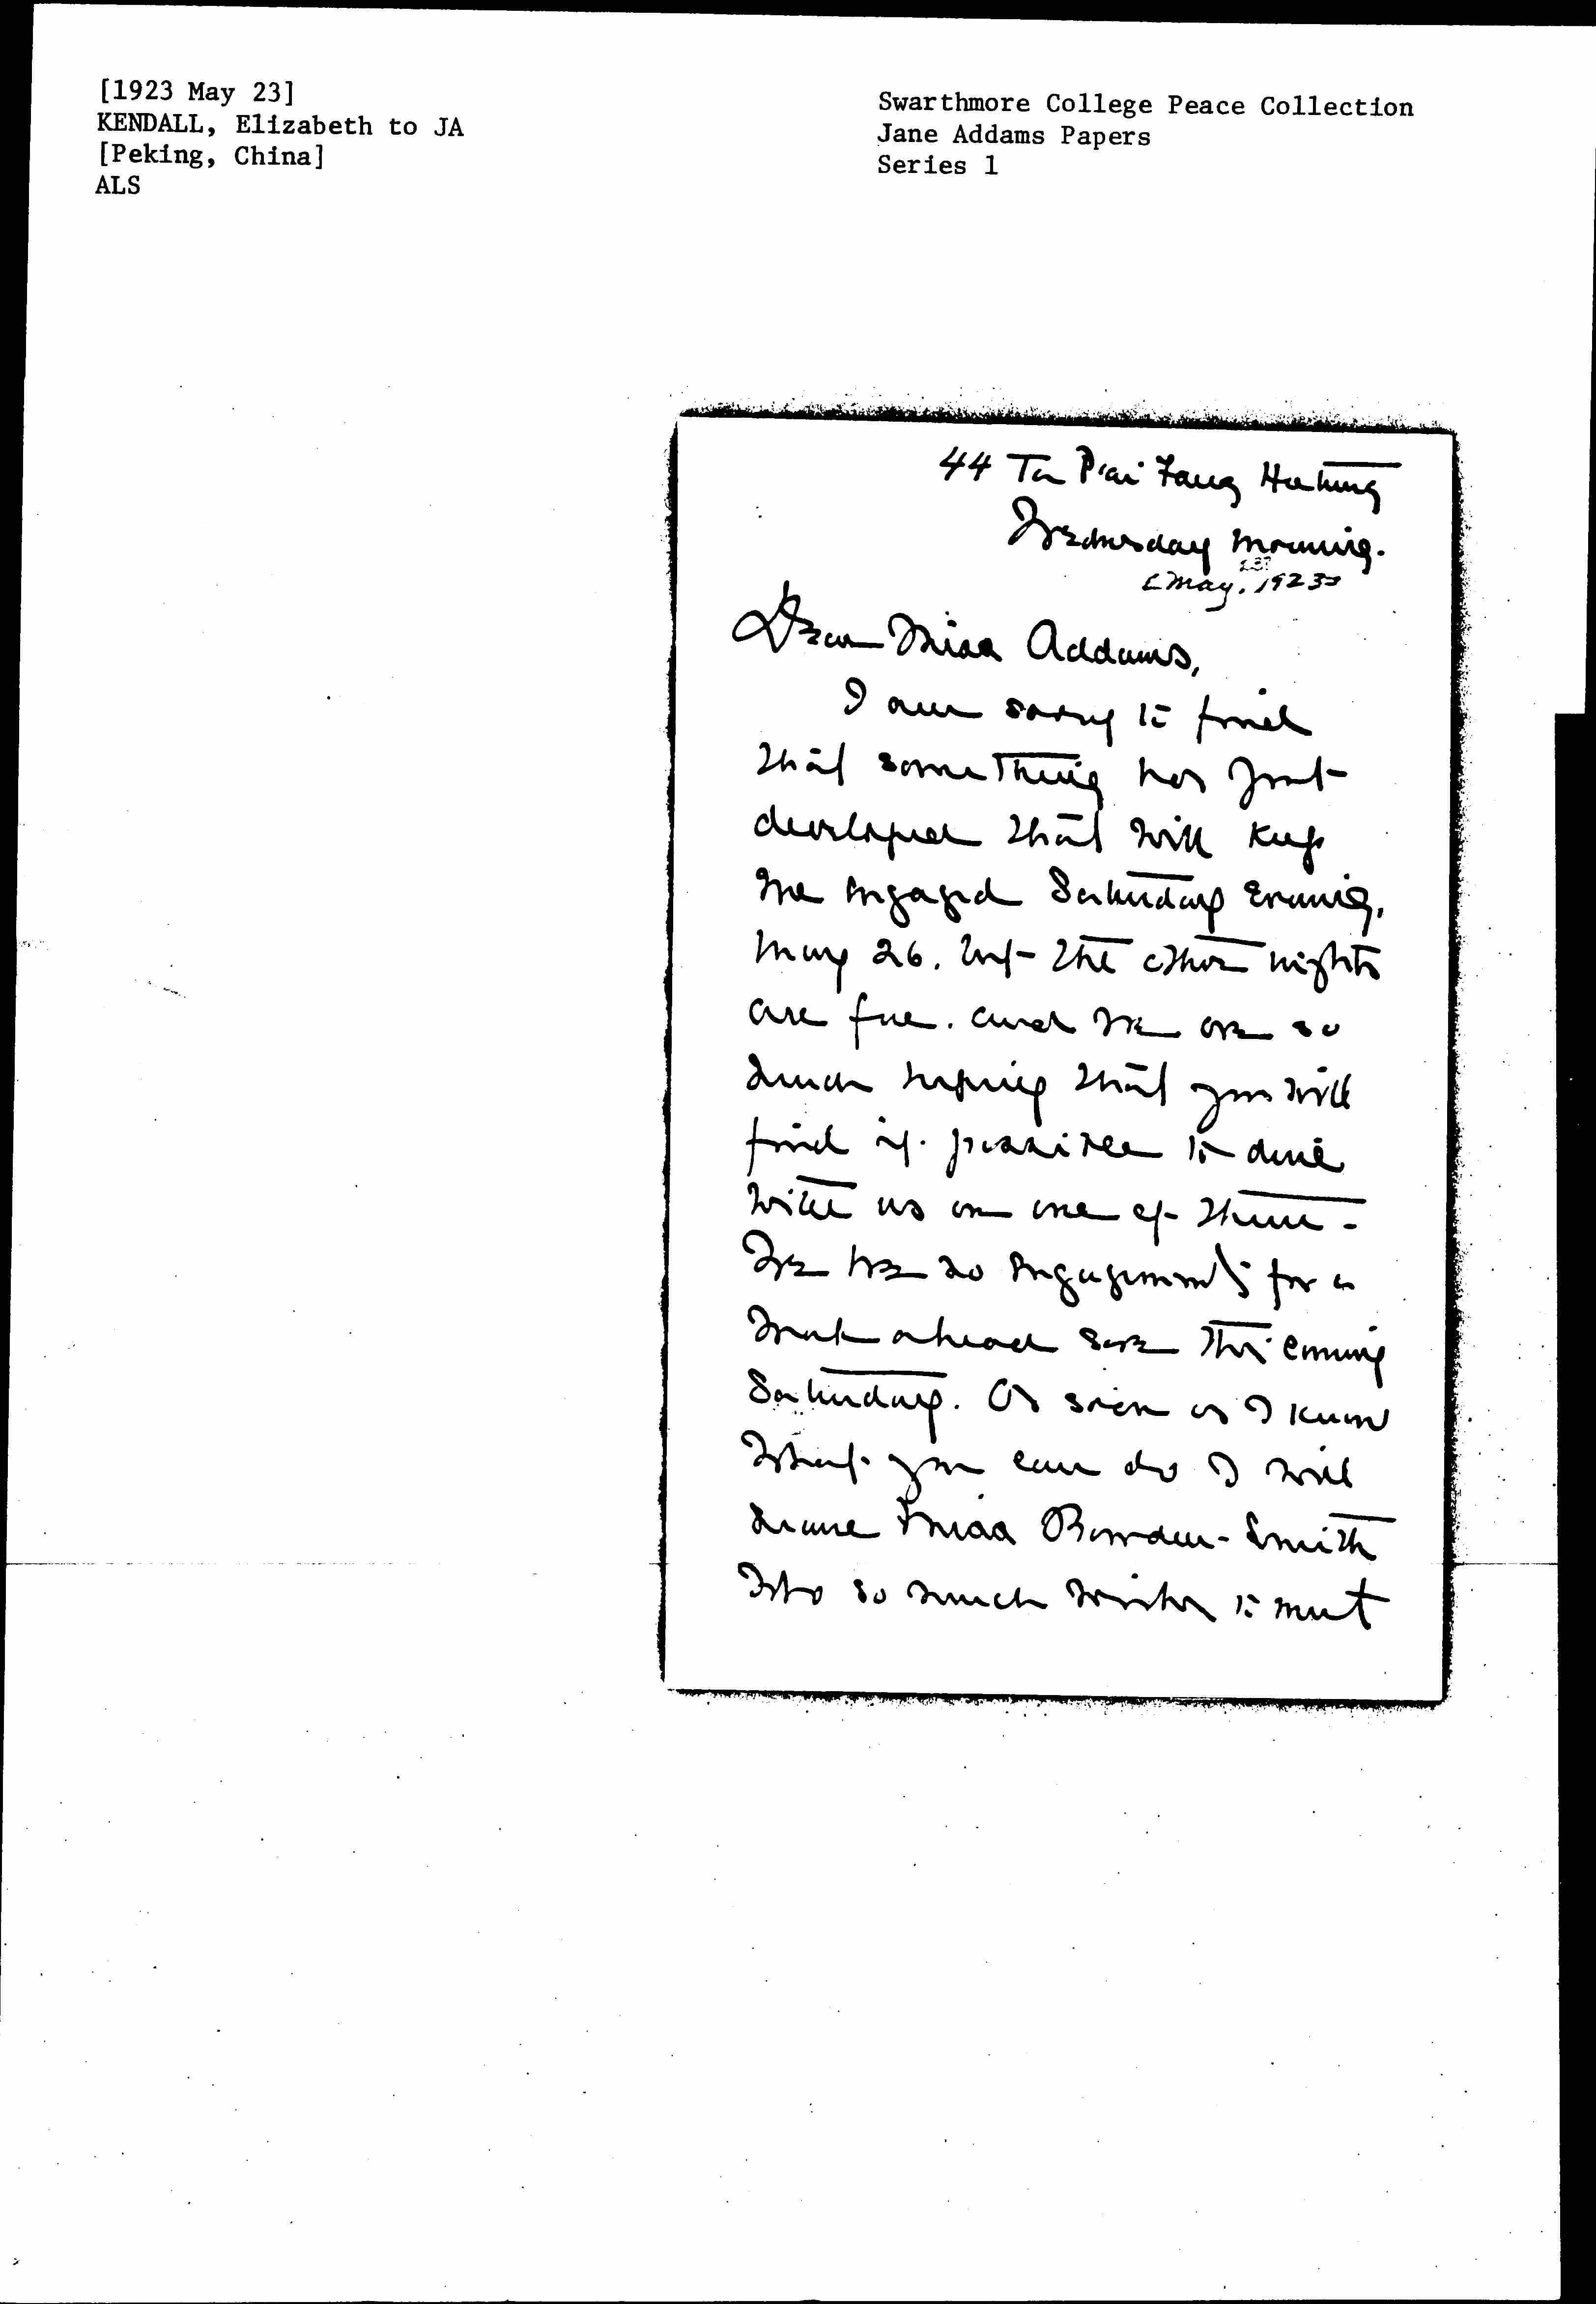 [1923 May 23]
KENDALL, Elizabeth to JA
[Peking, China]
ALS
Swarthmore College Peace Collection
Jane Addams Papers
Series 1
44 Ta P'ai Fang Hutung
Wednesday morning.
[May. 23? 1923]
Dear Miss Addams,
I am sorry to find
that something has just
developed that will keep
me engaged Saturday evening,
May 26. but the other nights
are free. and we are so
much hoping that you will
find it possible to dine
with us on one of them -
We have no engagements for a
week ahead save this coming
Saturday. As soon as I know
what you can do I will
Miss Bowden-Smith
who so much wishes to meet